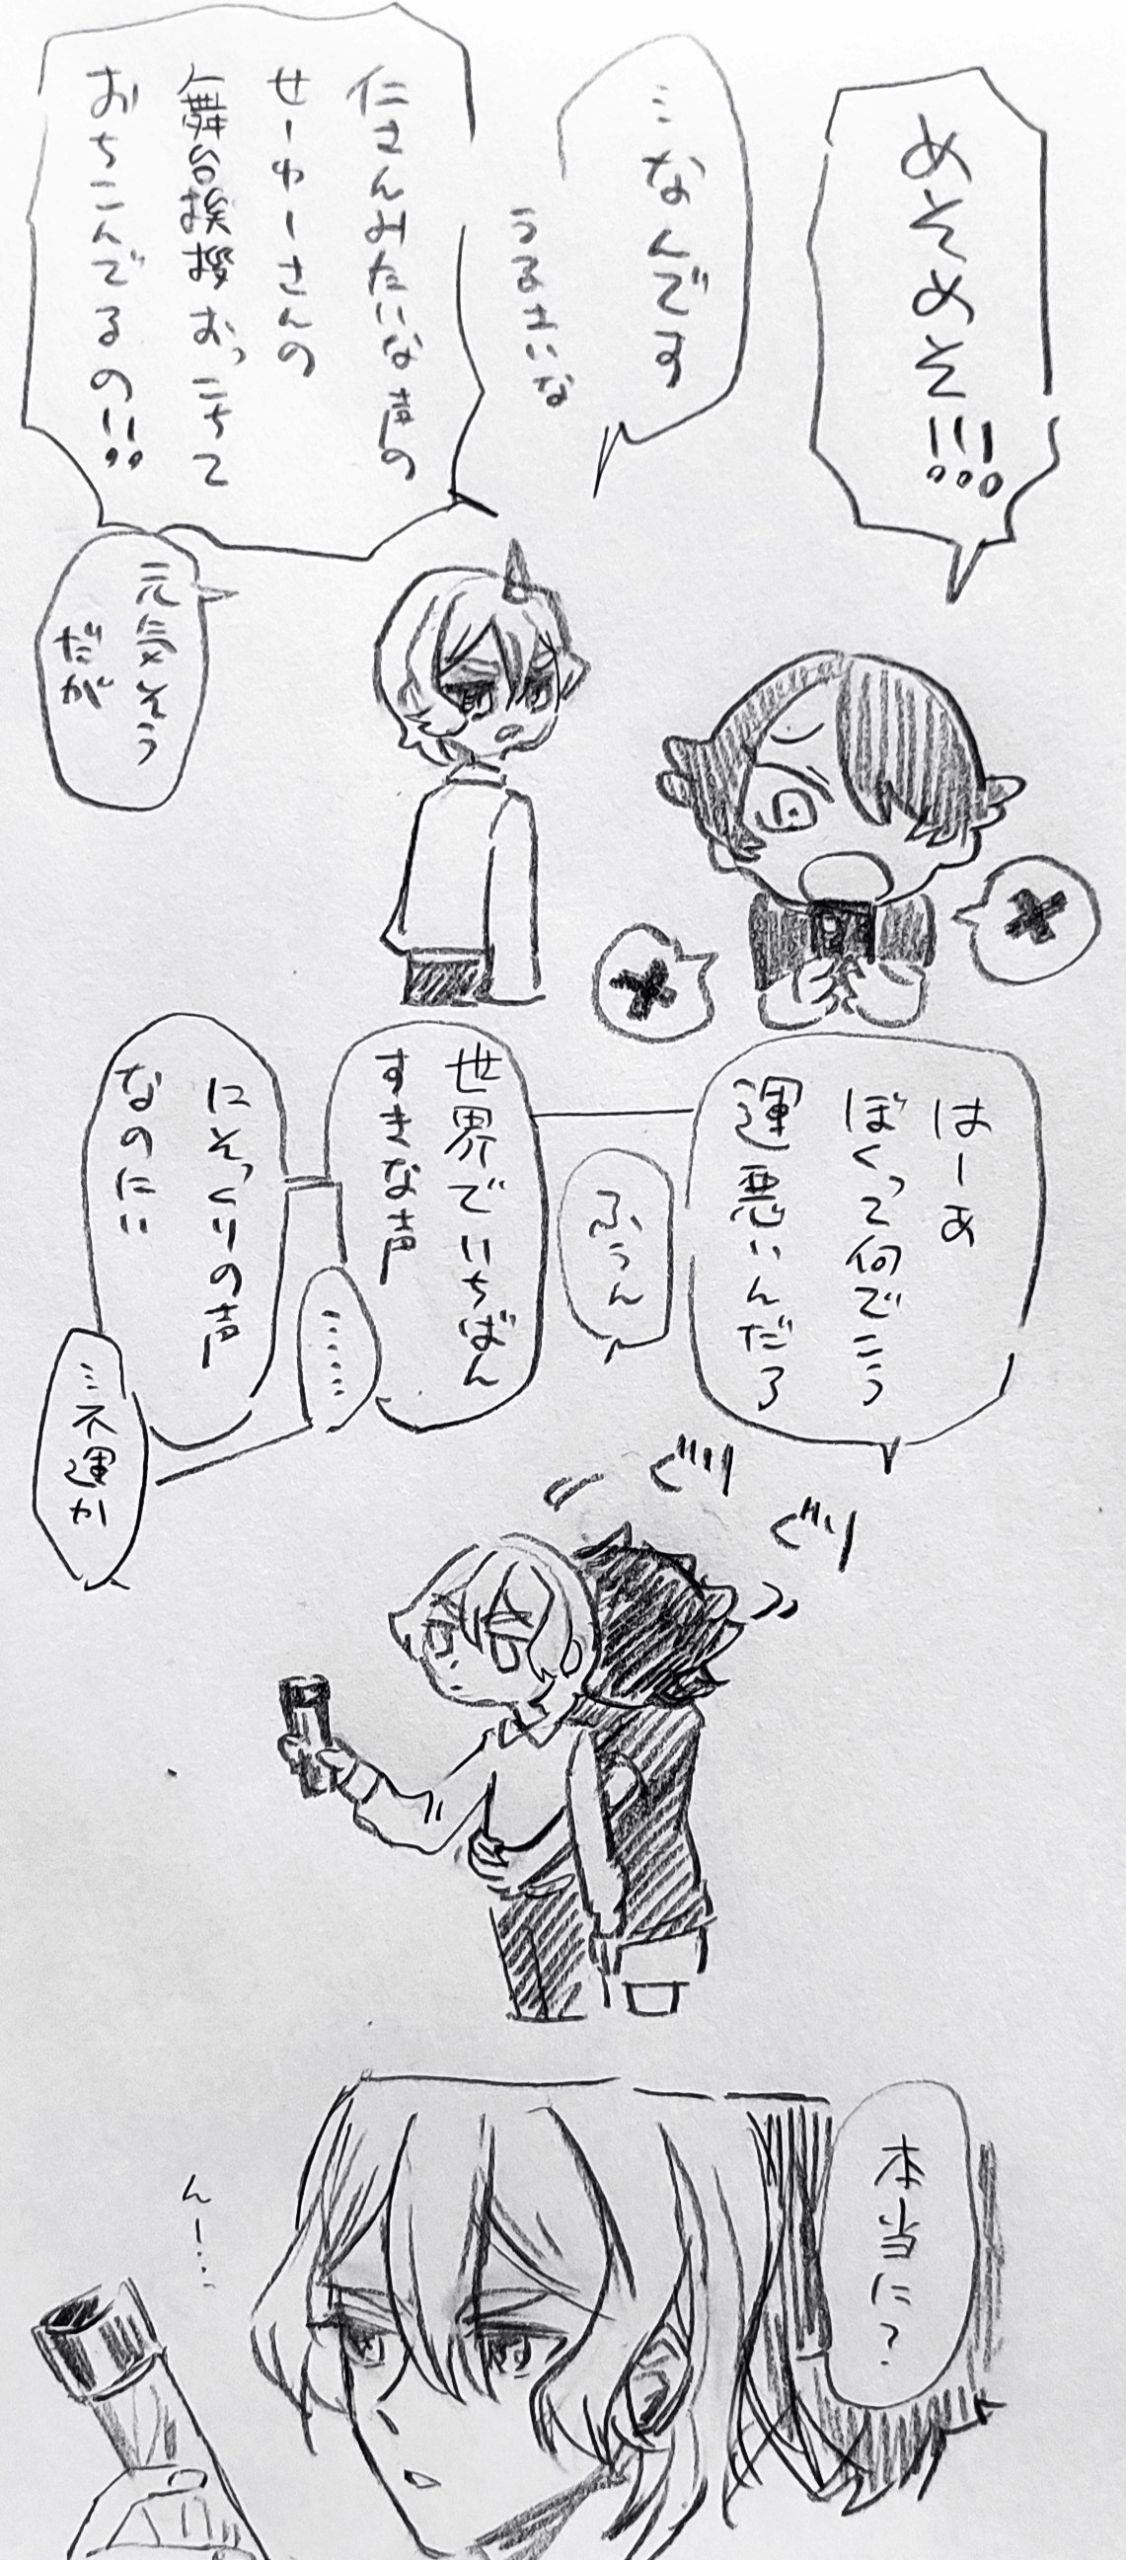 めそめそ!!!
…なんです
うるさいな
仁さんみたいな声の
せーゆーさんの
舞台挨拶おっこちて
おちこんでるの!!
元気そう
だが
はーあ
ぼくって何でこう
運悪いんだろ
ふぅん
世界でいちばん
すきな声
……
にそっくりの声
なのにぃ
…不運か
ぐりぐり
本当に?
んー…